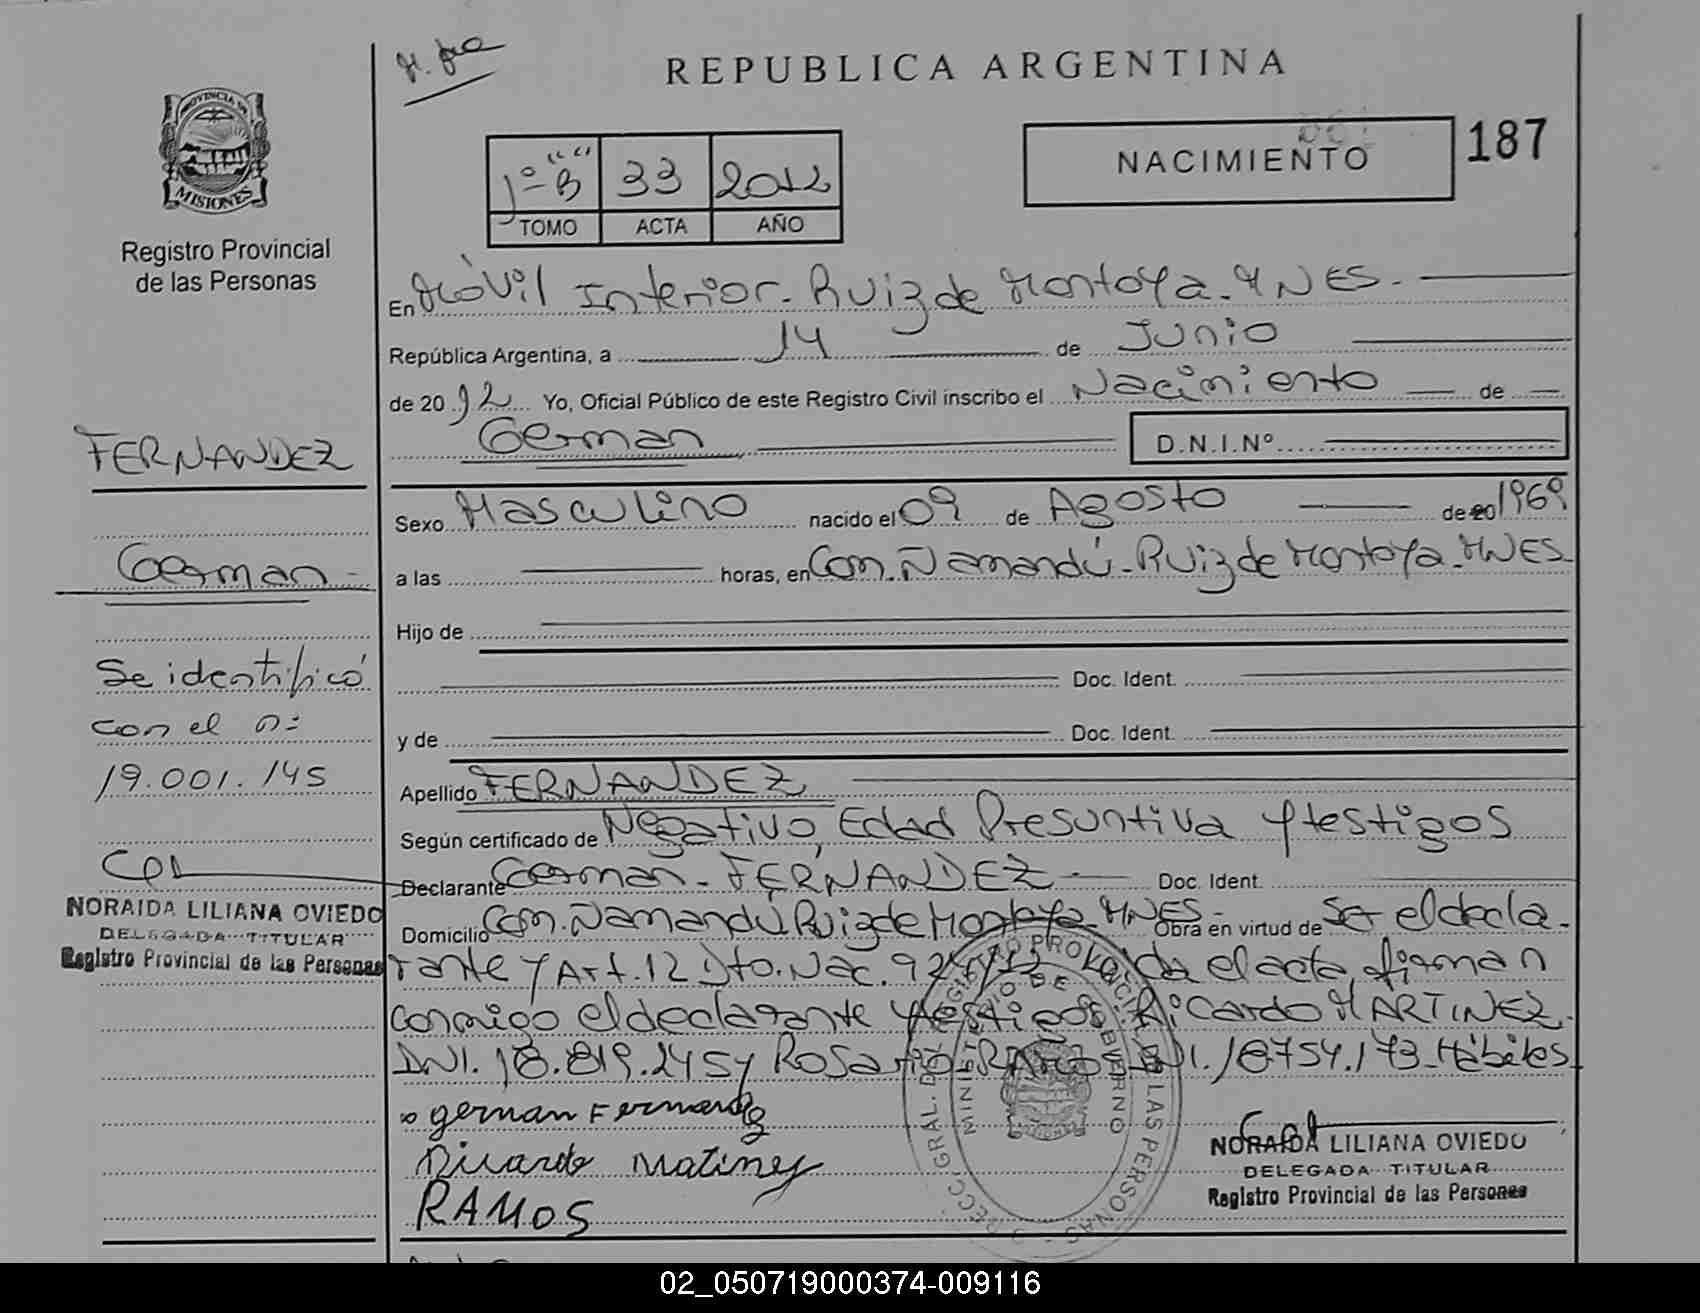 REPUBLICA ARGENTINA
PROVINCIA DE
MISIONES
Registro Provincial
de las Personas
1º "B" 33 2012
TOMO ACTA AÑO
NACIMIENTO
187
En Móvil Interior. Ruiz de Montoya. MNES.
República Argentina, a 14 de Junio
de 2012 Yo, Oficial Público de este Registro Civil inscribo el Nacimiento de
German D.N.I.Nº
FERNANDEZ
German
Se identificó
con el nº
19.001.145
NORAIDA LILIANA OVIEDO
DELEGADA TITULAR
Registro Provincial de las Personas
Sexo Masculino nacido el 09 de Agosto de 20 1969
a las horas, en Com. Ñamandú. Ruiz de Montoya. MNES
Hijo de
Doc. Ident.
y de Doc. Ident.
Apellido FERNANDEZ
Según certificado de Negativo, Edad Presuntiva y testigos
Declarante German. FERNANDEZ Doc. Ident.
Domicilio Com. Ñamandú Ruiz de Montoya. MNES. Obra en virtud de Ser el decla-
rante y Art. 12 Dto. Nac. 92 el acta firman
conmigo el declarante y testigos Ricardo MARTINEZ.
DNI. 18.819.245 y Rosario RAMOS DNI. 18754.173 Hábiles
German Fernandez
Ricardo Matinez
RAMOS
NORAIDA LILIANA OVIEDO
DELEGADA TITULAR
Registro Provincial de las Personas
MINISTERIO DE GOBIERNO
02_050719000374-009116